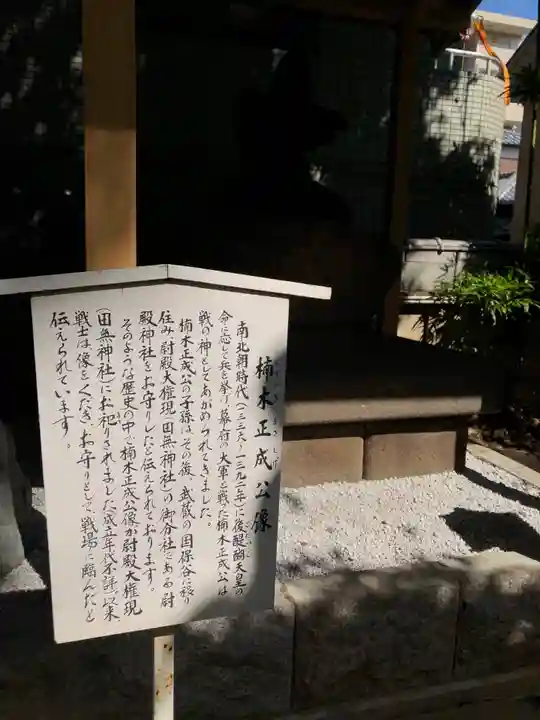 楠木正成公像
南北朝時代(一三三六〜一三九二年)に後醍醐天皇の
命に応じて兵を挙げ、幕府の大軍と戦った楠木正成公は
戦の神としてあがめられてきました。
楠木正成公の子孫は、その後、武蔵の国保谷に移り
住み尉殿大権現(田無神社)の御分社である尉
殿神社をお守りしたと伝えられております。
そのような歴史の中で楠木正成公像が尉殿大権現
(田無神社)にお祀りされました(成立年代不詳)。以来
戦士は像をくだき、お守りとして、戦場に臨んだと
伝えられています。